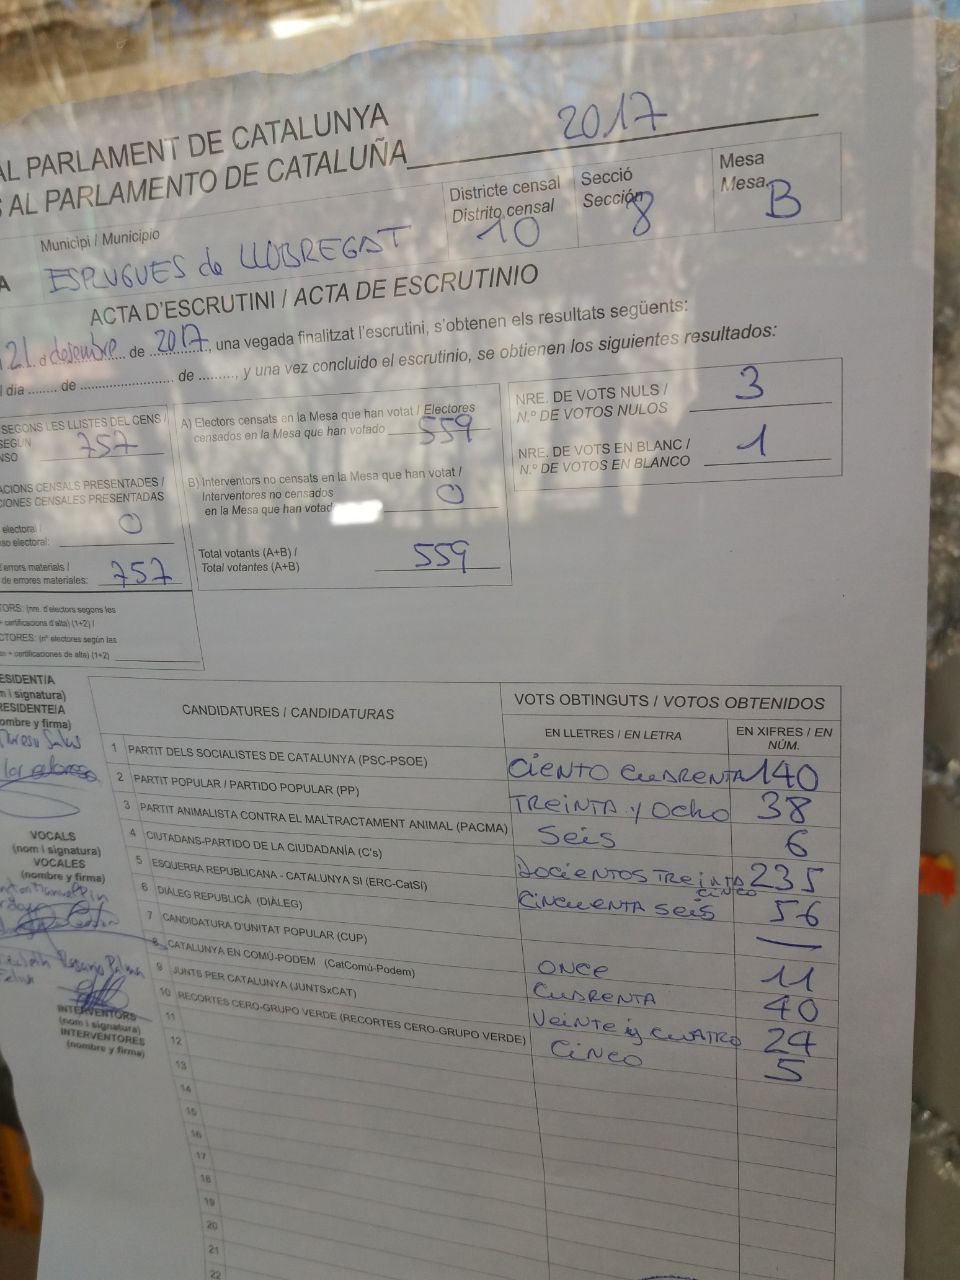 AL PARLAMENT DE CATALUNYA
S AL PARLAMENTO DE CATALUÑA 2017
Municipi / Municipio
ESPLUGUES de LLOBREGAT
Districte censal
Distrito censal
10
Secció
Sección
8
Mesa
Mesa
B
ACTA D'ESCRUTINI / ACTA DE ESCRUTINIO
21 d desembre de 2017, una vegada finalitzat l'escrutini, s'obtenen els resultats següents:
l dia ........ de .......................... de ........., y una vez concluido el escrutinio, se obtienen los siguientes resultados:
SEGONS LES LLISTES DEL CENS /
SEGÚN
NSO 757
ACIONS CENSALS PRESENTADES /
CIONES CENSALES PRESENTADAS
electoral /
so electoral: 0
d'errors materials /
de errores materiales: 757
TORS: (nre. d'electors segons les
+ certificacions d'alta) (1+2) /
CTORES: (nº electores según las
+ certificaciones de alta) (1+2)
A) Electors censats en la Mesa que han votat / Electores
censados en la Mesa que han votado 559
B) Interventors no censats en la Mesa que han votat /
Interventores no censados
en la Mesa que han votad 0
Total votants (A+B) /
Total votantes (A+B) 559
NRE. DE VOTS NULS /
N.º DE VOTOS NULOS 3
NRE. DE VOTS EN BLANC /
N.º DE VOTOS EN BLANCO 1
ESIDENT/A
m i signatura)
RESIDENTE/A
ombre y firma)
VOCALS
(nom i signatura)
VOCALES
(nombre y firma)
INTERVENTORS
(nom i signatura)
INTERVENTORES
(nombre y firma)
CANDIDATURES / CANDIDATURAS
VOTS OBTINGUTS / VOTOS OBTENIDOS
EN LLETRES / EN LETRA
EN XIFRES / EN
NÚM.
1 PARTIT DELS SOCIALISTES DE CATALUNYA (PSC-PSOE) CIENTO CUARENTA 140
2 PARTIT POPULAR / PARTIDO POPULAR (PP) TREINTA y OCHO 38
3 PARTIT ANIMALISTA CONTRA EL MALTRACTAMENT ANIMAL (PACMA) SEIS 6
4 CIUTADANS-PARTIDO DE LA CIUDADANÍA (C's) DOCIENTOS TREINTA CINCO 235
5 ESQUERRA REPUBLICANA - CATALUNYA SI (ERC-CatSI) CINCUENTA SEIS 56
6 DIÀLEG REPUBLICÀ (DIÀLEG) —
7 CANDIDATURA D'UNITAT POPULAR (CUP) ONCE 11
8 CATALUNYA EN COMÚ-PODEM (CatComú-Podem) CUARENTA 40
9 JUNTS PER CATALUNYA (JUNTSxCAT) VEINTE y CUATRO 24
10 RECORTES CERO-GRUPO VERDE (RECORTES CERO-GRUPO VERDE) CINCO 5
11
12
13
14
15
16
17
18
19
20
21
22